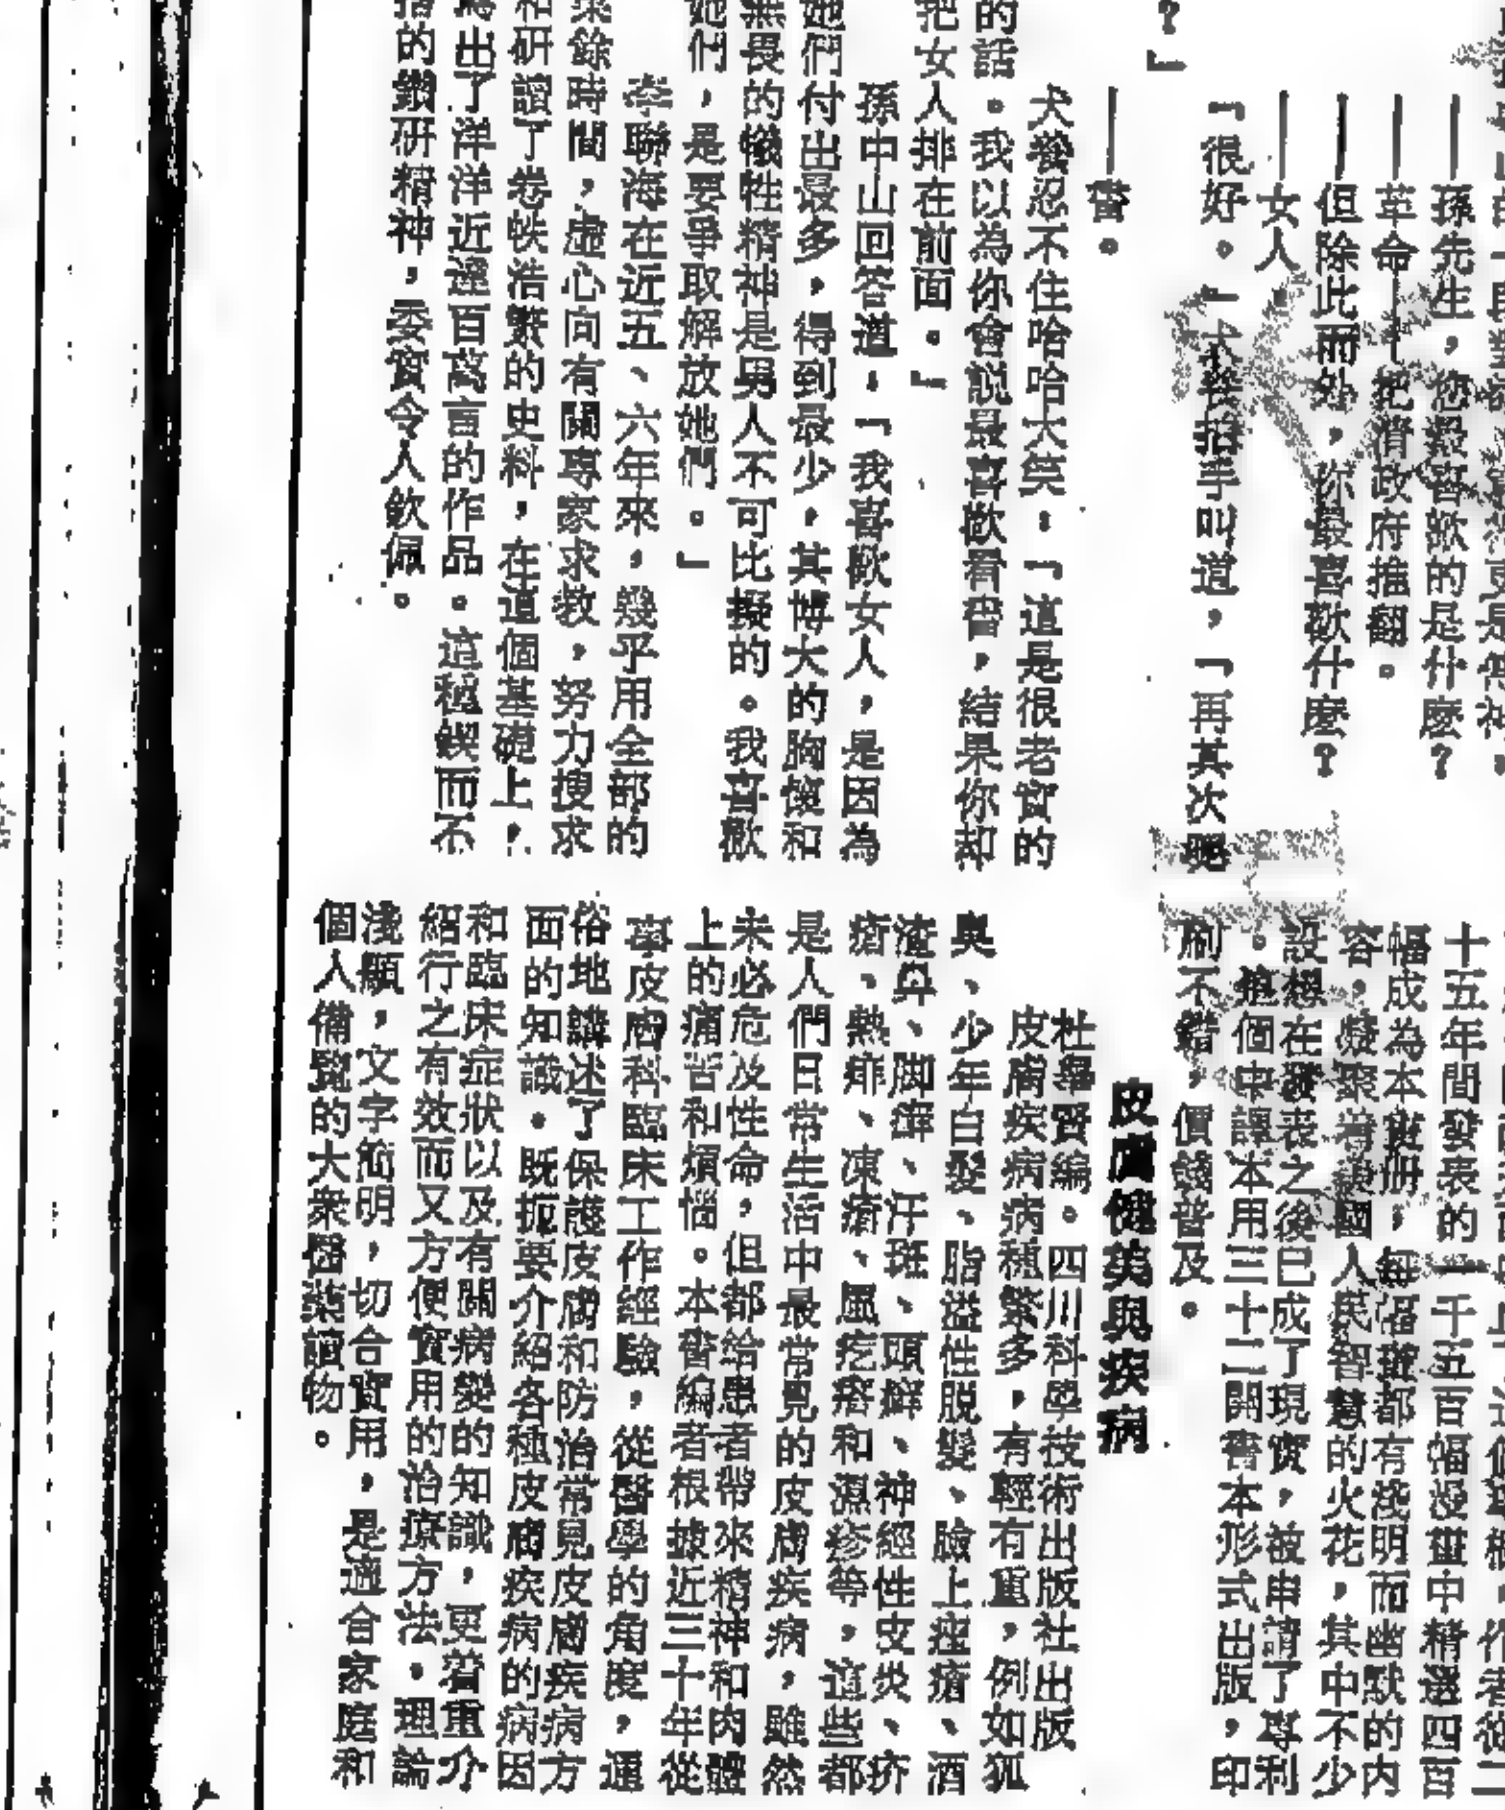 ——孫先生，您最喜歡的是什麼？
——革命——把清政府推翻。
——但除此而外，你最喜歡什麼？
——女人。
「很好。」犬養拍手叫道，「再其次呢
？」
——書。
犬養忍不住哈哈大笑，「這是很老實的
的話。我以為你會說最喜歡看書，結果你却
把女人排在前面。」
孫中山回答道，「我喜歡女人，是因為
她們付出最多，得到最少，其博大的胸懷和
無畏的犧牲精神是男人不可比擬的。我喜歡
她們，是要爭取解放她們。」
李聯海在近五、六年來，幾乎用全部的
業餘時間，虛心向有關專家求教，努力搜求
和研讀了卷帙浩繁的史料，在這個基礎上，
寫出了洋洋近達百萬言的作品。這種鍥而不
捨的鑽研精神，委實令人欽佩。
十五年間發表的一千五百幅漫畫中精選四百
幅成為本畫册，每幅畫都有淺明而幽默的内
容，凝聚着
國人民智慧的火花，其中不少
設想在發表之後已成了現實，被申請了專利
。這個中譯本用三十二開書本形式出版，印
刷不錯，價錢普及。
皮膚健美與疾病
杜學賢編。四川科學技術出版社出版
皮膚疾病病種繁多，有輕有重，例如狐
臭、少年白髮、脂溢性脱髮、臉上痤瘡、酒
渣鼻、脚癬、汗斑、頭癬、神經性皮炎、疥
瘡、熱痱、凍瘡、風疙瘩和濕疹等，這些都
是人們日常生活中最常見的皮膚疾病，雖然
未必危及性命，但都給患者帶來精神和肉體
上的痛苦和煩惱。本書編者根據近三十年從
事皮膚科臨床工作經驗，從醫學的角度，通
俗地講述了保護皮膚和防治常見皮膚疾病方
面的知識。既扼要介紹各種皮膚疾病的病因
和臨床症狀以及有關病變的知識，更着重介
紹行之有效而又方便實用的治療方法。理論
淺顯，文字簡明，切合實用，是適合家庭和
個人備覽的大衆醫藥讀物。